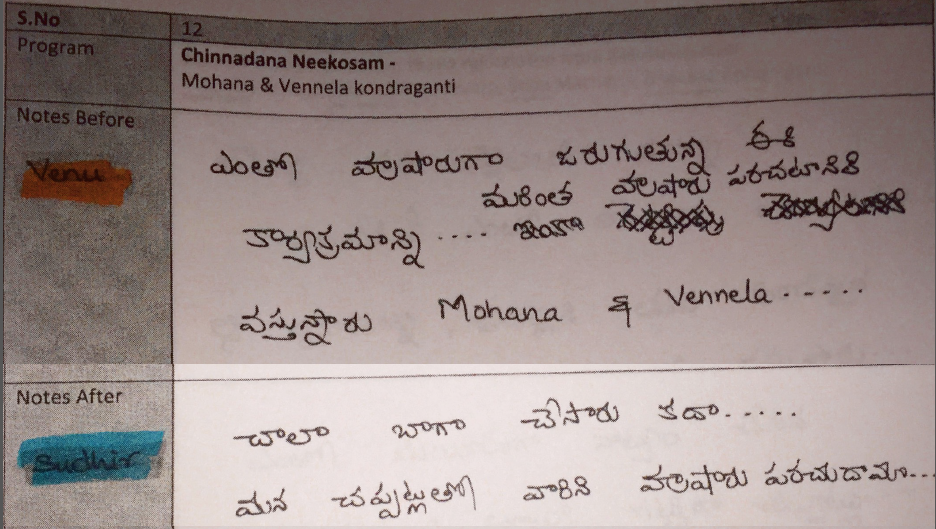 S.No 12
Program
Chinnadana Neekosam -
Mohana & Vennela kondraganti
Notes Before
Venu
ఎంతో హుషారుగా జరుగుతున్న ఈ
మరింత హుషారు పరచటానికి
కార్యక్రమాన్ని .... ఇంకా
వస్తున్నారు Mohana & Vennela .....
Notes After
Sudhir
చాలా బాగా చేసారు కదా.....
మన చప్పట్లుతో వారిని హుషారు పరచుదామా...